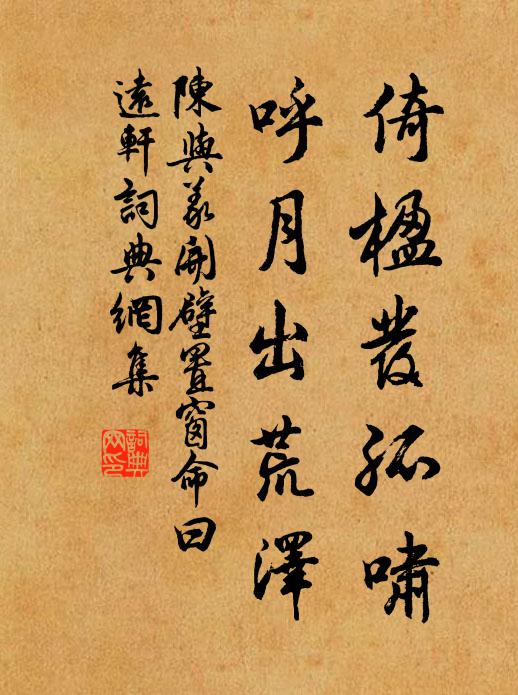 倚楹發孤嘯
呼月出荒澤
陳與義開壁置窗命曰
遠軒詞典網集
詞典
网印